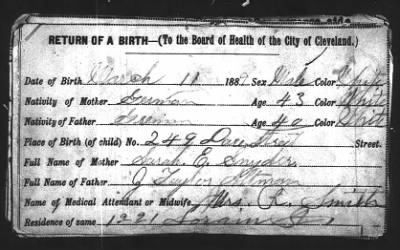 RETURN OF A BIRTH—(To the Board of Health of the City of Cleveland.)
Date of Birth March 11 1889 Sex Male Color White
Nativity of Mother German Age 43 Color White
Nativity of Father German Age 40 Color White
Place of Birth (of child) No. 249 Street.
Full Name of Mother Sarah E. Snyder
Full Name of Father J Taylor
Name of Medical Attendant or Midwife, Mrs. R. Smith
Residence of same 1321 Lorain St.